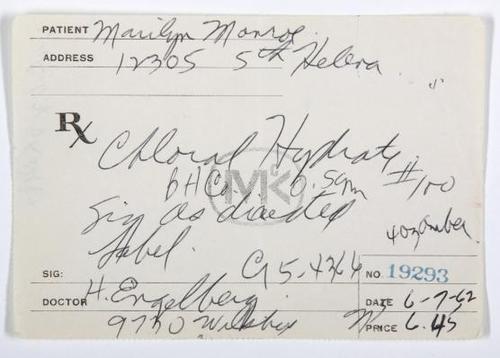 PATIENT Marilyn Monroe
ADDRESS 12305 5th Helena
Rx Chloral Hydrate
0.5gm #100
MK
Sig as directed
Label.
SIG: G 5-4366 NO. 19293
DOCTOR H. Engelberg DATE 6-7-62
9730 Wilshire PRICE 6.45